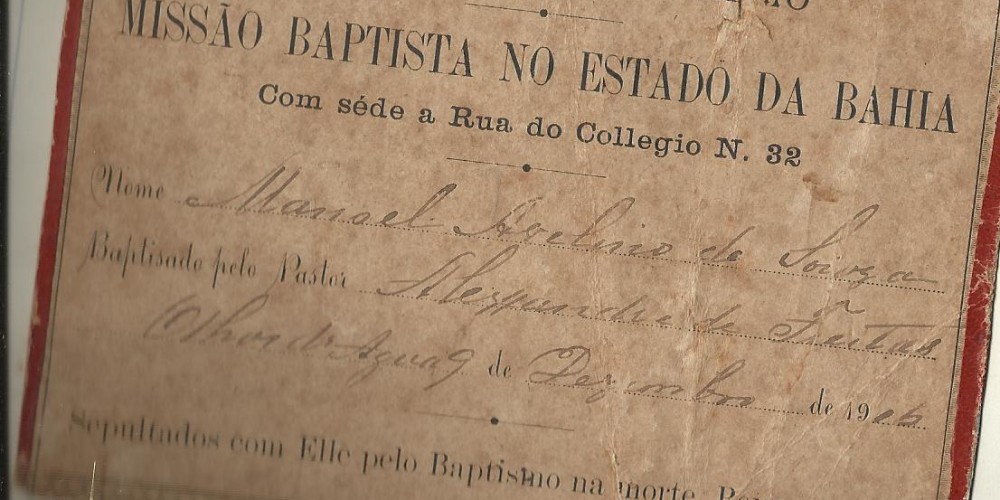 MISSÃO BAPTISTA NO ESTADO DA BAHIA
Com séde a Rua do Collegio N. 32
Nome Manoel Avelino de Souza
Baptisado pelo Pastor Alexandre de Freitas
Olhos d'Agua 9 de Dezembro de 19
Sepultados com Elle pelo Baptismo na morte.